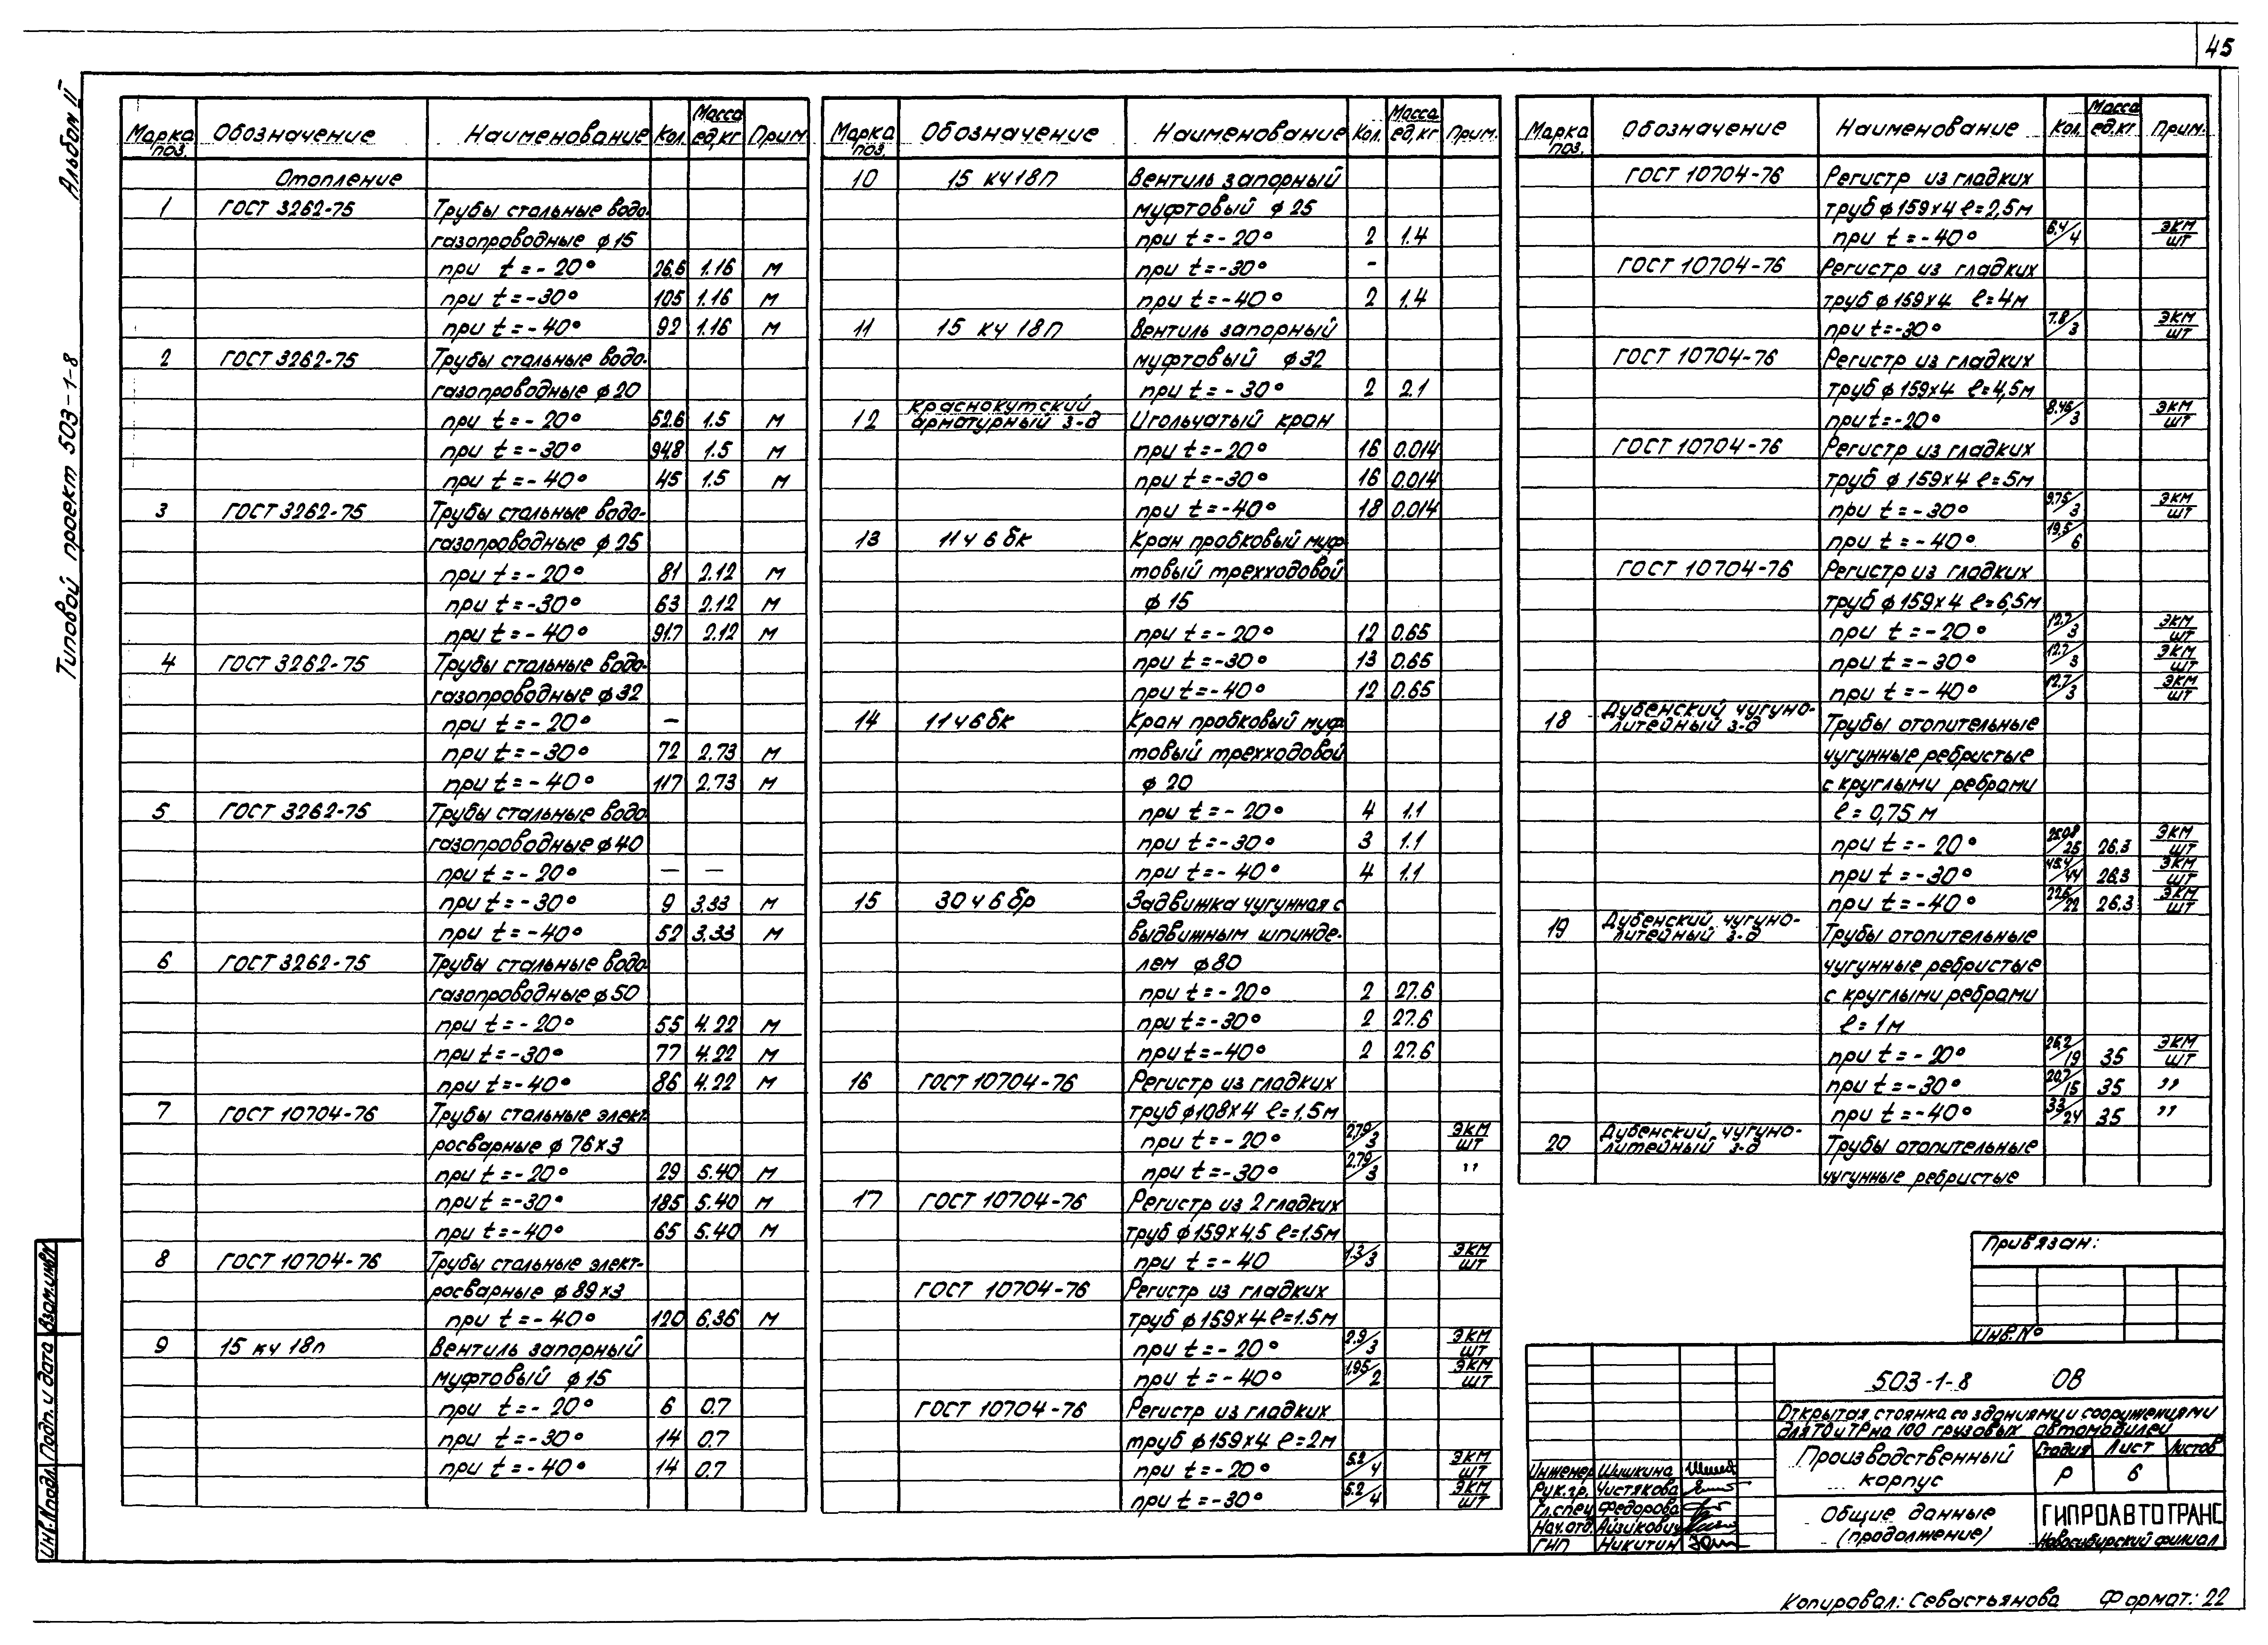 45
Альбом II
Типовой проект 503-1-8
Марка поз. Обозначение Наименование Кол. Масса ед,кг Прим
Отопление
1 ГОСТ 3262-75 Трубы стальные водо-
газопроводные φ15
при t=-20° 26.6 1.16 м
при t=-30° 105 1.16 м
при t=-40° 92 1.16 м
2 ГОСТ 3262-75 Трубы стальные водо-
газопроводные φ20
при t=-20° 52.6 1.5 м
при t=-30° 94.8 1.5 м
при t=-40° 45 1.5 м
3 ГОСТ 3262-75 Трубы стальные водо-
газопроводные φ25
при t=-20° 81 2.12 м
при t=-30° 63 2.12 м
при t=-40° 91.7 2.12 м
4 ГОСТ 3262-75 Трубы стальные водо-
газопроводные φ32
при t=-20° —
при t=-30° 72 2.73 м
при t=-40° 117 2.73 м
5 ГОСТ 3262-75 Трубы стальные водо-
газопроводные φ40
при t=-20° — —
при t=-30° 9 3.33 м
при t=-40° 52 3.33 м
6 ГОСТ 3262-75 Трубы стальные водо-
газопроводные φ50
при t=-20° 55 4.22 м
при t=-30° 77 4.22 м
при t=-40° 86 4.22 м
7 ГОСТ 10704-76 Трубы стальные элект-
росварные φ76×3
при t=-20° 29 5.40 м
при t=-30° 185 5.40 м
при t=-40° 65 5.40 м
8 ГОСТ 10704-76 Трубы стальные элект-
росварные φ89×3
при t=-40° 120 6.36 м
9 15 кч 18п Вентиль запорный
муфтовый φ15
при t=-20° 6 0.7
при t=-30° 14 0.7
при t=-40° 14 0.7
Марка поз. Обозначение Наименование Кол. Масса ед,кг Прим.
10 15 кч18п Вентиль запорный
муфтовый φ25
при t=-20° 2 1.4
при t=-30° -
при t=-40° 2 1.4
11 15 кч 18п Вентиль запорный
муфтовый φ32
при t=-30° 2 2.1
12 Краснокутский арматурный з-д Игольчатый кран
при t=-20° 16 0.014
при t=-30° 16 0.014
при t=-40° 18 0.014
13 11ч6бк Кран пробковый муф
товый трехходовой
φ15
при t=-20° 12 0.65
при t=-30° 13 0.65
при t=-40° 12 0.65
14 11ч6бк Кран пробковый муф
товый трехходовой
φ20
при t=-20° 4 1.1
при t=-30° 3 1.1
при t=-40° 4 1.1
15 30ч6бр Задвижка чугунная с
выдвижным шпинде-
лем φ80
при t=-20° 2 27.6
при t=-30° 2 27.6
при t=-40° 2 27.6
16 ГОСТ 10704-76 Регистр из гладких
труб φ108×4 ℓ=1.5м
при t=-20° 2.79/3 ЭКМ/шт
при t=-30° 2.79/3 "
17 ГОСТ 10704-76 Регистр из 2 гладких
труб φ159×4,5 ℓ=1.5м
при t=-40 1.3/3 ЭКМ/шт
ГОСТ 10704-76 Регистр из гладких
труб φ159×4 ℓ=1.5м
при t=-20° 2.9/3 ЭКМ/шт
при t=-40° 1.95/2 ЭКМ/шт
ГОСТ 10704-76 Регистр из гладких
труб φ159×4 ℓ=2м
при t=-20° 5.2/4 ЭКМ/шт
при t=-30° 5.2/4 ЭКМ/шт
Марка поз. Обозначение Наименование Кол. Масса ед.кг Прим.
ГОСТ 10704-76 Регистр из гладких
труб φ159×4 ℓ=2,5м
при t=-40° 6.4/4 ЭКМ/шт
ГОСТ 10704-76 Регистр из гладких
труб φ159×4 ℓ=4м
при t=-30° 7.8/3 ЭКМ/шт
ГОСТ 10704-76 Регистр из гладких
труб φ159×4 ℓ=4,5м
при t=-20° 8.46/3 ЭКМ/шт
ГОСТ 10704-76 Регистр из гладких
труб φ159×4 ℓ=5м
при t=-30° 9.75/3 ЭКМ/шт
при t=-40° 19.5/6
ГОСТ 10704-76 Регистр из гладких
труб φ159×4 ℓ=6,5м
при t=-20° 12.7/3 ЭКМ/шт
при t=-30° 12.7/3 ЭКМ/шт
при t=-40° 12.7/3 ЭКМ/шт
18 Дубенский чугуно-литейный з-д Трубы отопительные
чугунные ребристые
с круглыми ребрами
ℓ=0,75 м
при t=-20° 25.08/25 26.3 ЭКМ/шт
при t=-30° 45.4/44 26.3 ЭКМ/шт
при t=-40° 22.6/22 26.3 ЭКМ/шт
19 Дубенский чугуно-литейный з-д Трубы отопительные
чугунные ребристые
с круглыми ребрами
ℓ=1м
при t=-20° 26.2/19 35 ЭКМ/шт
при t=-30° 20.7/15 35 "
при t=-40° 33/24 35 "
20 Дубенский чугуно-литейный з-д Трубы отопительные
чугунные ребристые
Привязан:
Инв.№
503-1-8 ОВ
Открытая стоянка со зданиями и сооружениями
для ТО и ТР на 100 грузовых автомобилей
Производственный корпус
Стадия Лист Листов
Р 6
Общие данные (продолжение)
ГИПРОАВТОТРАНС
Новосибирский филиал
Инженер Шишкина
Рук.гр. Чистякова
Гл.спец Федорова
Нач.отд. Айзикович
ГИП Никитин
Инв.№подл. Подп. и дата Взам.инв№
Копировал: Севастьянова Формат: 22